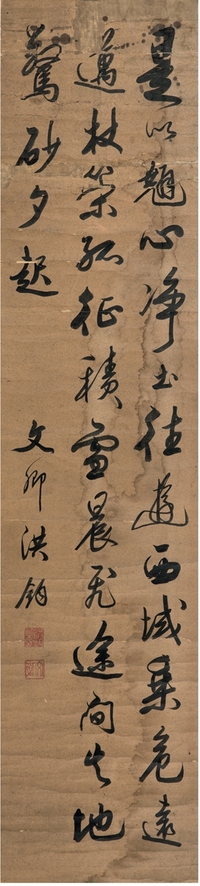 是以翹心净土往遊西域乗危遠
邁杖策孤征積雪晨飛途间失地
驚砂夕起
文卿洪鈞